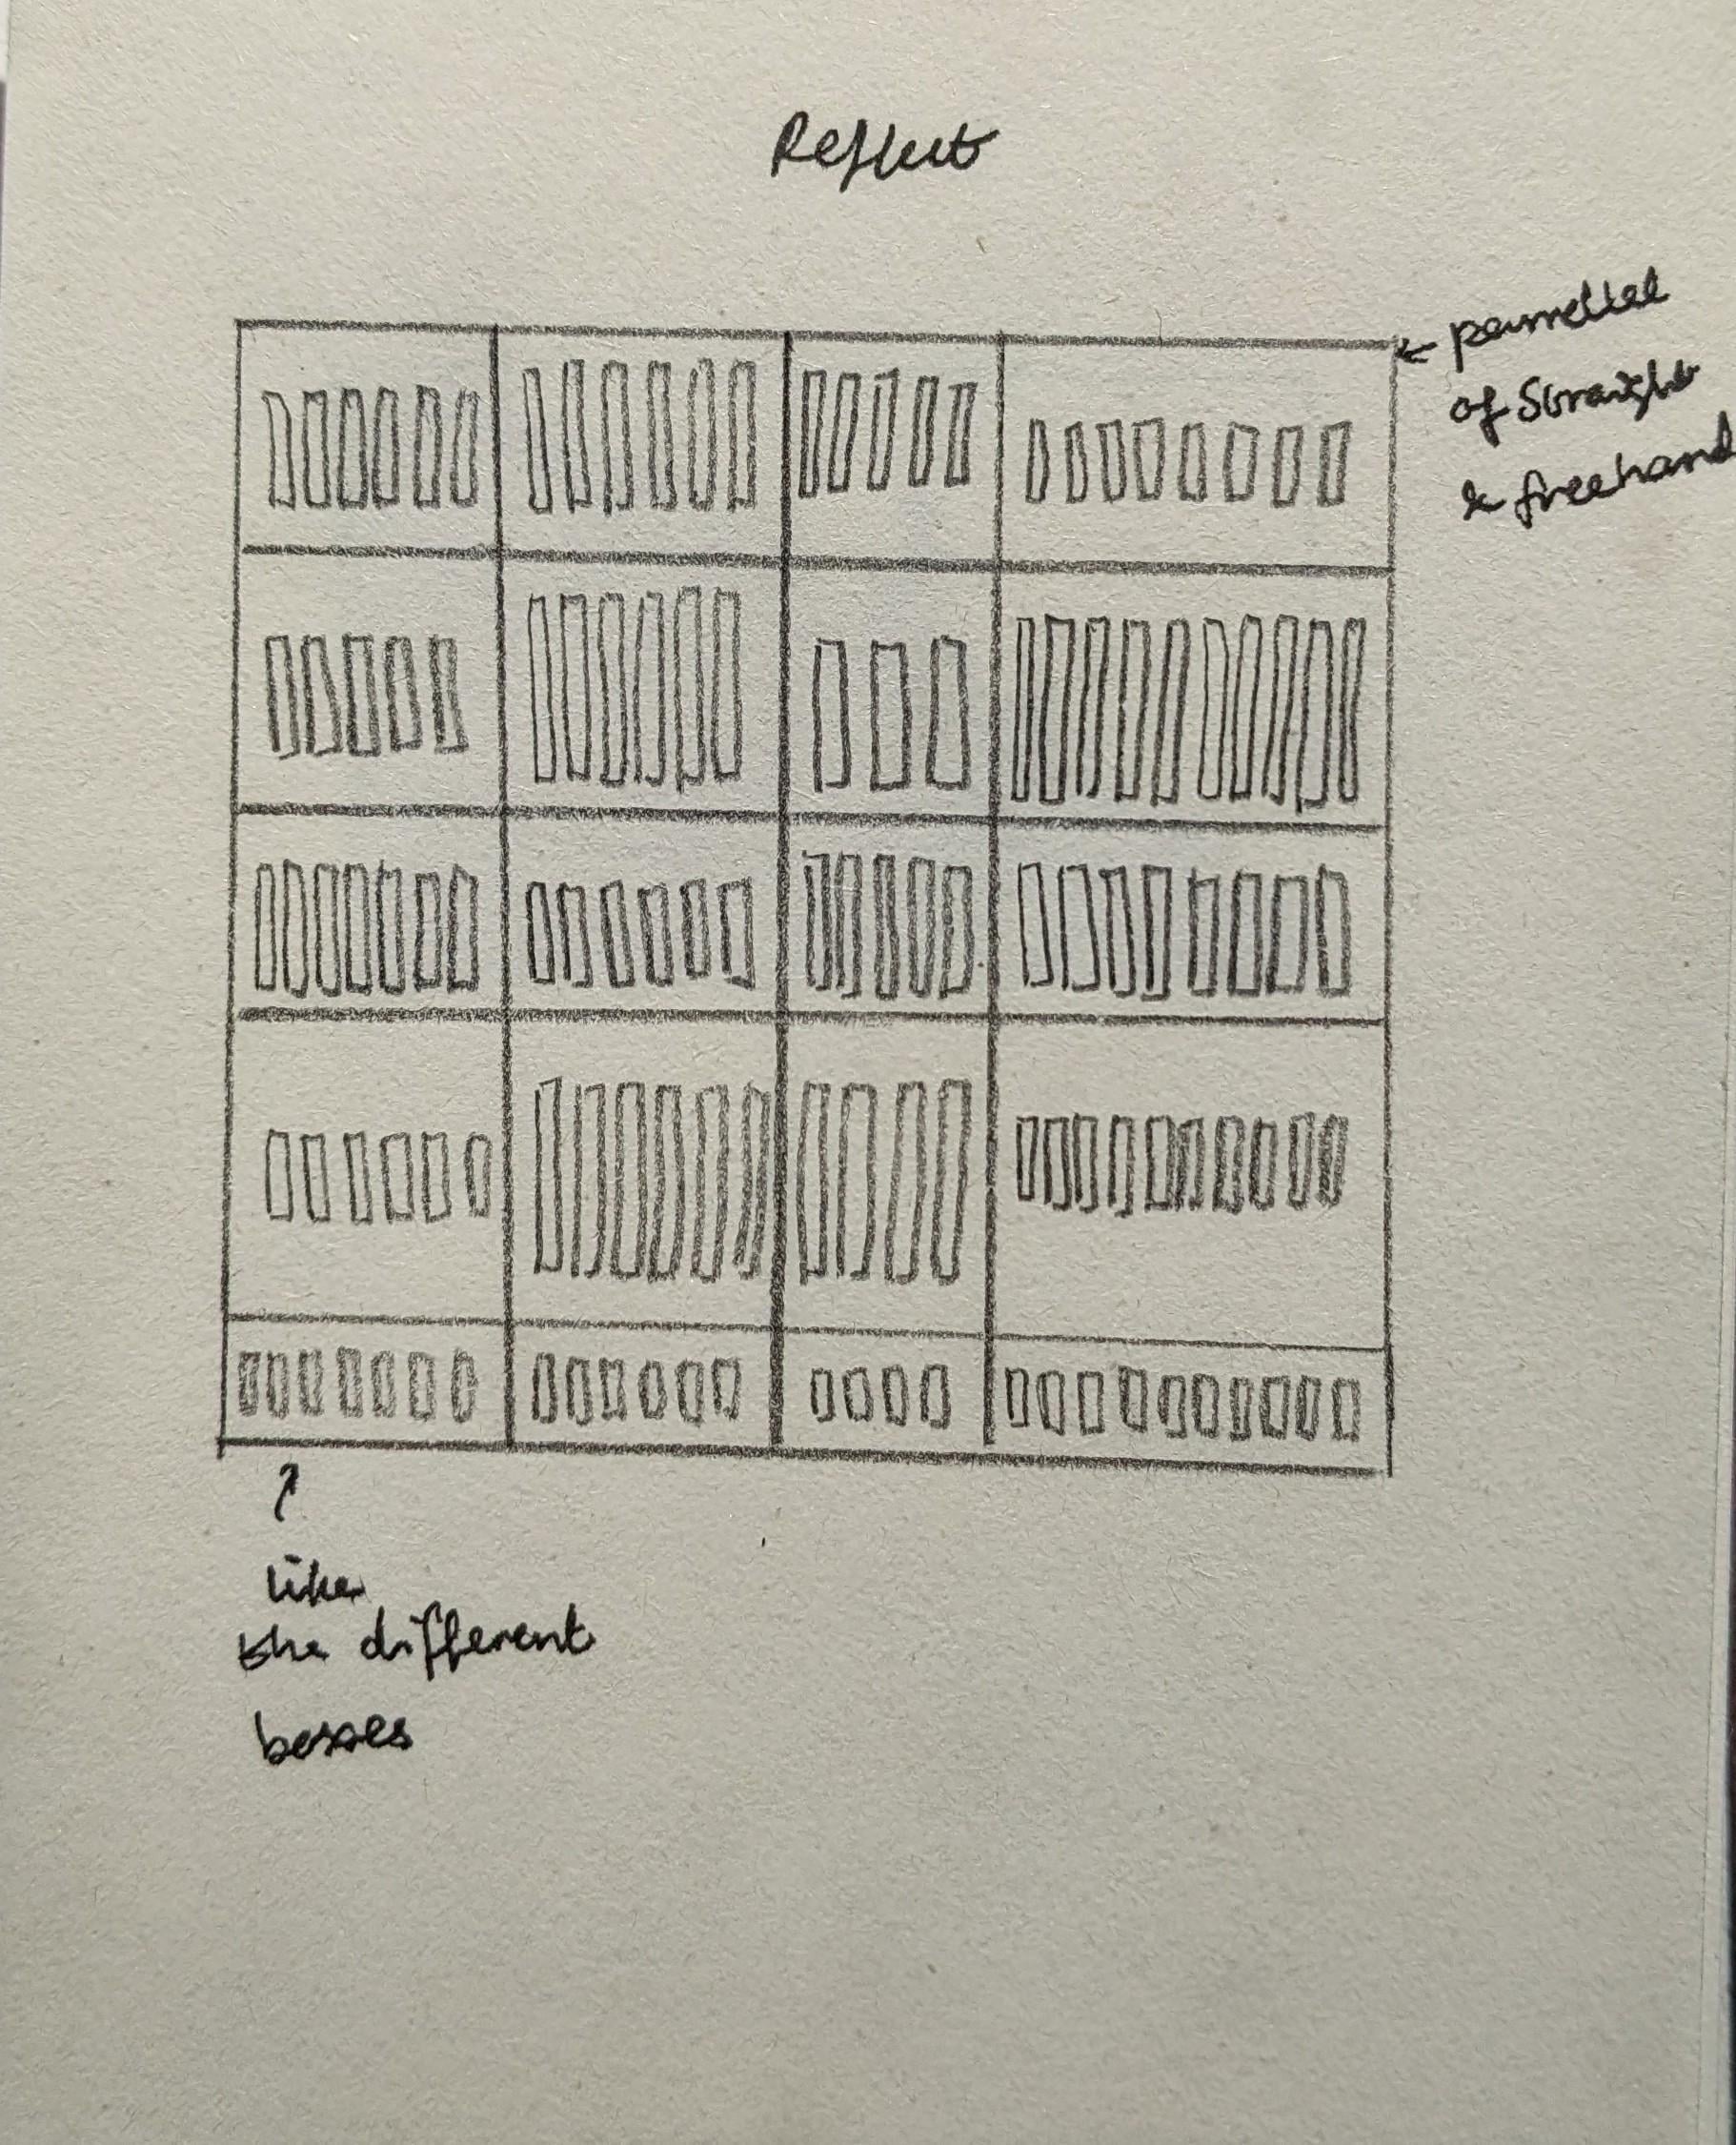 Reflect
← parrellel
of straight
& freehand
like
the different
boxes